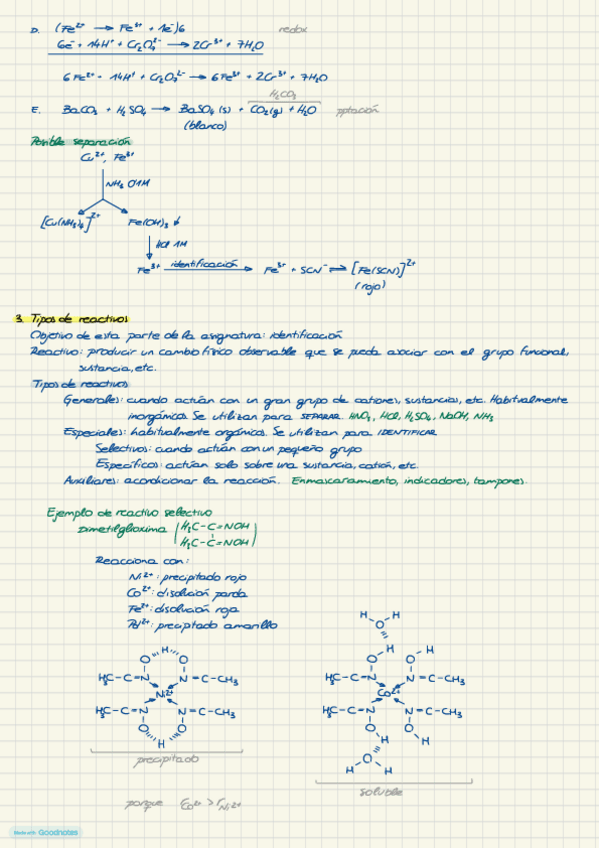 D. (Fe²⁺ → Fe³⁺ + 1e⁻)6 redox
6e⁻ + 14H⁺ + Cr₂O₇²⁻ → 2Cr³⁺ + 7H₂O
6Fe²⁺ + 14H⁺ + Cr₂O₇²⁻ → 6Fe³⁺ + 2Cr³⁺ + 7H₂O
H₂CO₃
E. BaCO₃ + H₂SO₄ → BaSO₄(s) + CO₂(g) + H₂O pptación
(blanco)
Posible separación
Cu²⁺, Fe³⁺
NH₃ 0'1M
[Cu(NH₃)₄]²⁺ Fe(OH)₃ ↓
HCl 1M
Fe³⁺ identificación → Fe³⁺ + SCN⁻ ⇌ [Fe(SCN)]²⁺
(rojo)
3. Tipos de reactivos
Objetivo de esta parte de la asignatura: identificación
Reactivo: producir un cambio físico observable que se pueda asociar con el grupo funcional,
sustancia, etc.
Tipos de reactivos
Generales: cuando actúan con un gran grupo de cationes, sustancias, etc. Habitualmente
inorgánicos. Se utilizan para SEPARAR. HNO₃, HCl, H₂SO₄, NaOH, NH₃
Especiales: habitualmente orgánicos. Se utilizan para IDENTIFICAR
Selectivos: cuando actúan con un pequeño grupo
Específicos: actúan solo sobre una sustancia, catión, etc.
Auxiliares: acondicionar la reacción. Enmascaramiento, indicadores, tampones.
Ejemplo de reactivo selectivo
Dimetilglioxima (H₃C-C=NOH
H₃C-C=NOH)
Reacciona con:
Ni²⁺: precipitado rojo
Co²⁺: disolución parda
Fe²⁺: disolución roja
Pd²⁺: precipitado amarillo
H H
O
H
O O
H₃C-C=N N=C-CH₃
Ni²⁺
H₃C-C=N N=C-CH₃
O O
H
precipitado
H H
O O
H₃C-C=N N=C-CH₃
Co²⁺
H₃C-C=N N=C-CH₃
O O
H H
O
H H
soluble
porque r Co²⁺ > r Ni²⁺
Made with Goodnotes